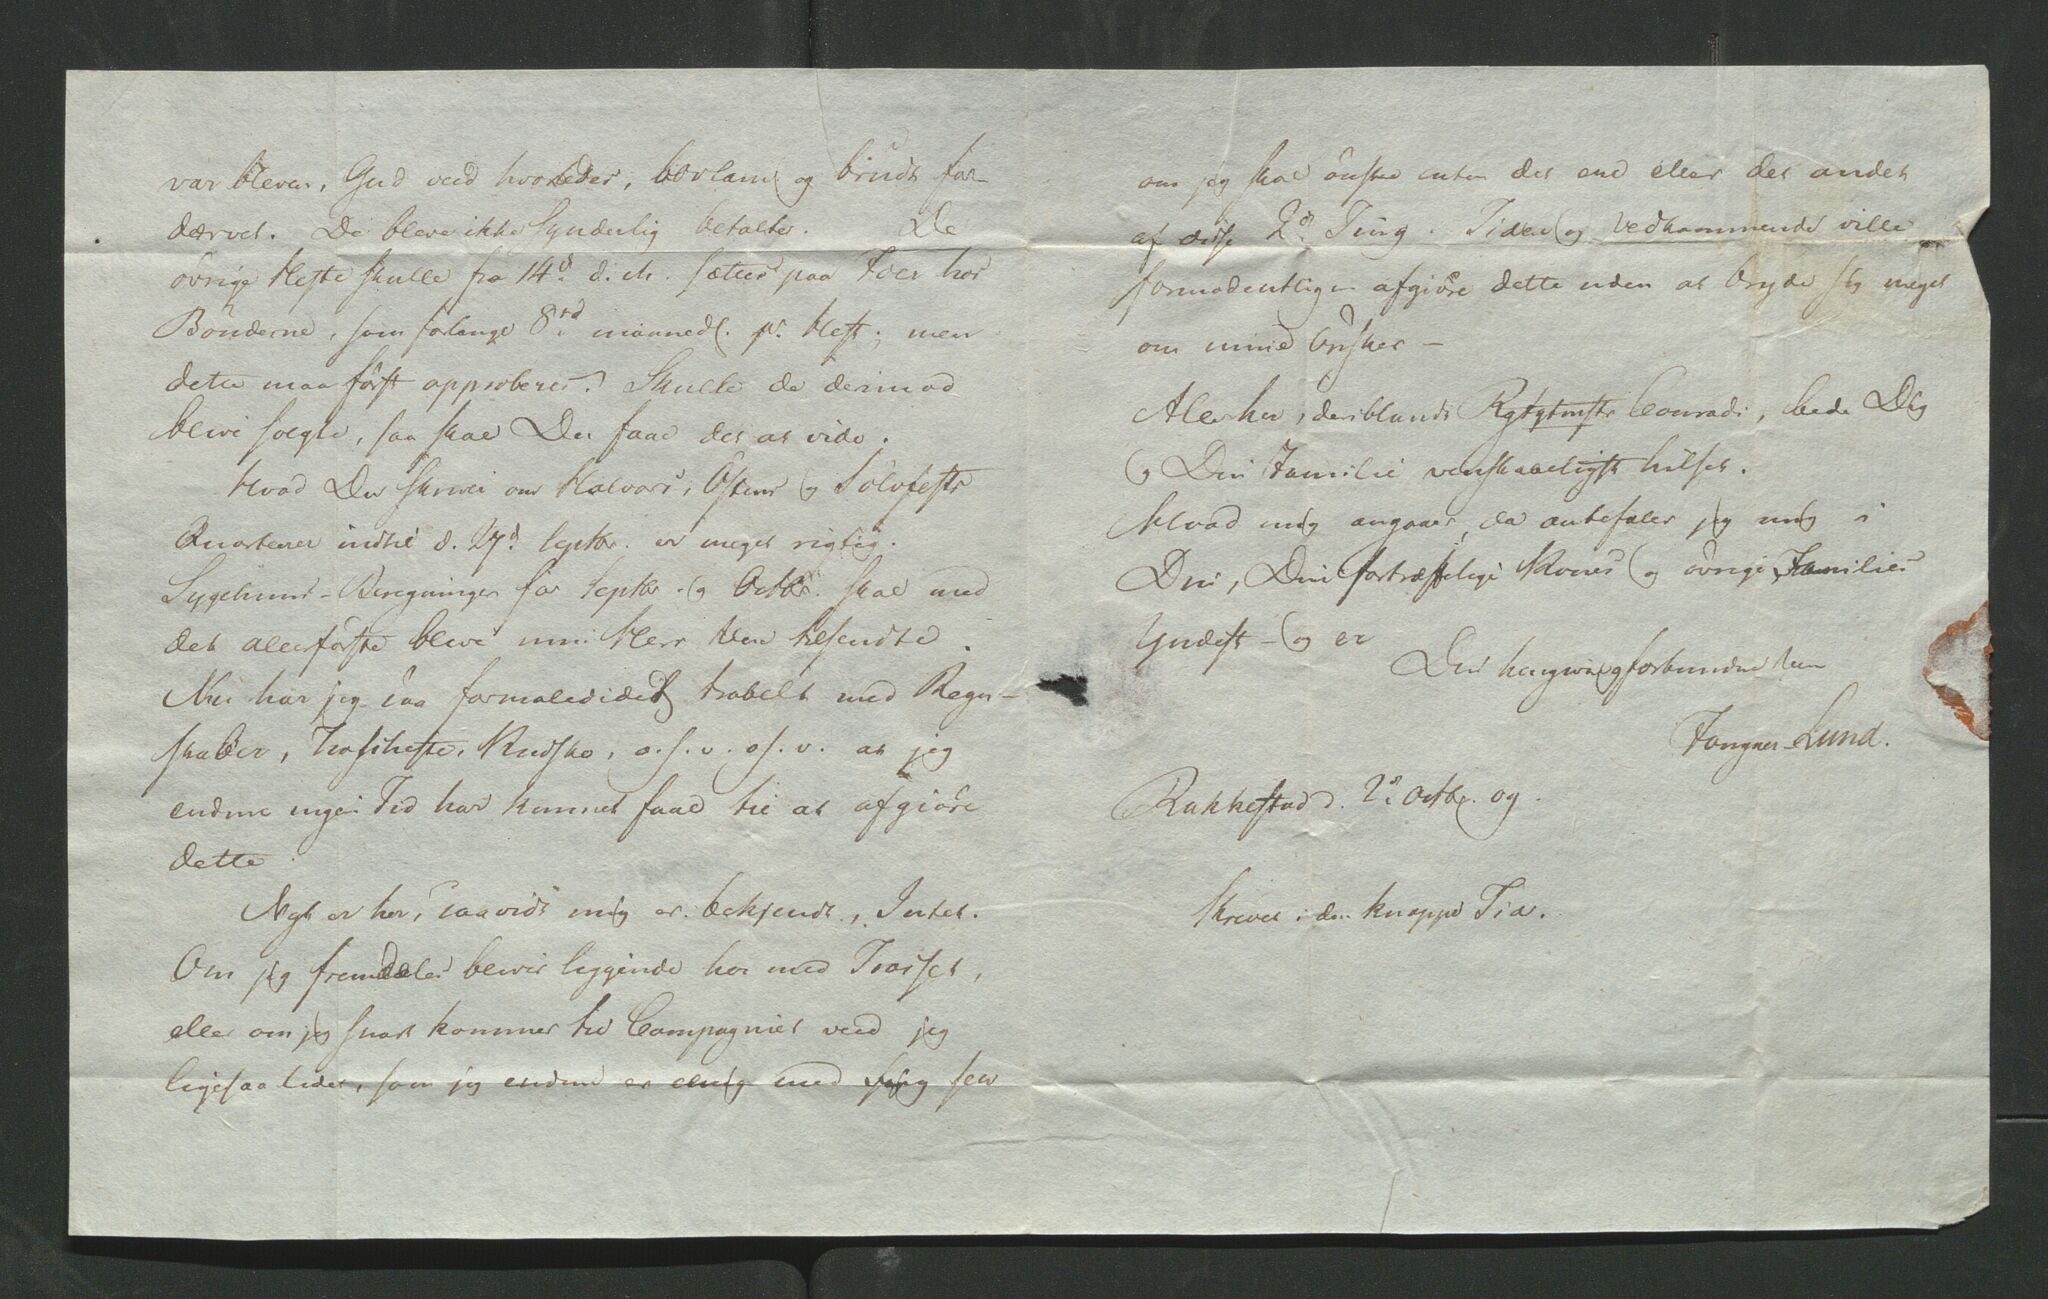 var bleven, Gud veed hvorledes, bovlam og brudt for-
dærvet. De bleve ikke Synderlig betalte. De
övrige Heste skulle fra 14d d. M. sættes paa Foer hos
Bönderne, som forlange 8rd maanedl. pr. Hest; men
dette maa först approberes. Skulle de derimod
blive solgte, saa skal Du faae det at vide.
Hvad Du skriver om Halvors, Östens og Sölvfests
Qvarterer indtil d. 27d Septbr. er meget rigtig.
Sygehuus-Beregninger for Septbr. og Octbr. skal med
det allerförste blive min Herr Ven tilsendte.
Nu har jeg saa formaledidet travelt med Regn-
skaber, Trosheste, Kudske, o.s.v. o.s.v. at jeg
endnu ingen Tid har kunnet faae til at afgiöre
dette
Nyt er her, saavidt mig er bekjendt, Intet.
Om jeg fremdeles bliver liggende her med Trosset,
eller om jeg snart kommer til Compagniet veed jeg
ligesaa lidet, som jeg endnu er enig med mig selv
om jeg skal önske enten det ene eller det andet
af disse 2de Ting. Tiden og Vedkommende ville
formodentligen afgiöre dette uden at bryde sig meget
om mine Önsker –
Alle her, deriblandt Rgtqtmstr Conradi, bede Dig
og Din Familie venskabeligst hilset.
Hvad mig angaaer, da anbefaler jeg mig i
Din, Din fortræffelige Kones og övrige Families
Yndest – og er
Din hengivne og forbundne Ven
Fangner-Lund.
Rakkestad d. 2d Octbr. 09.
Skrevet i den knappe Tid.